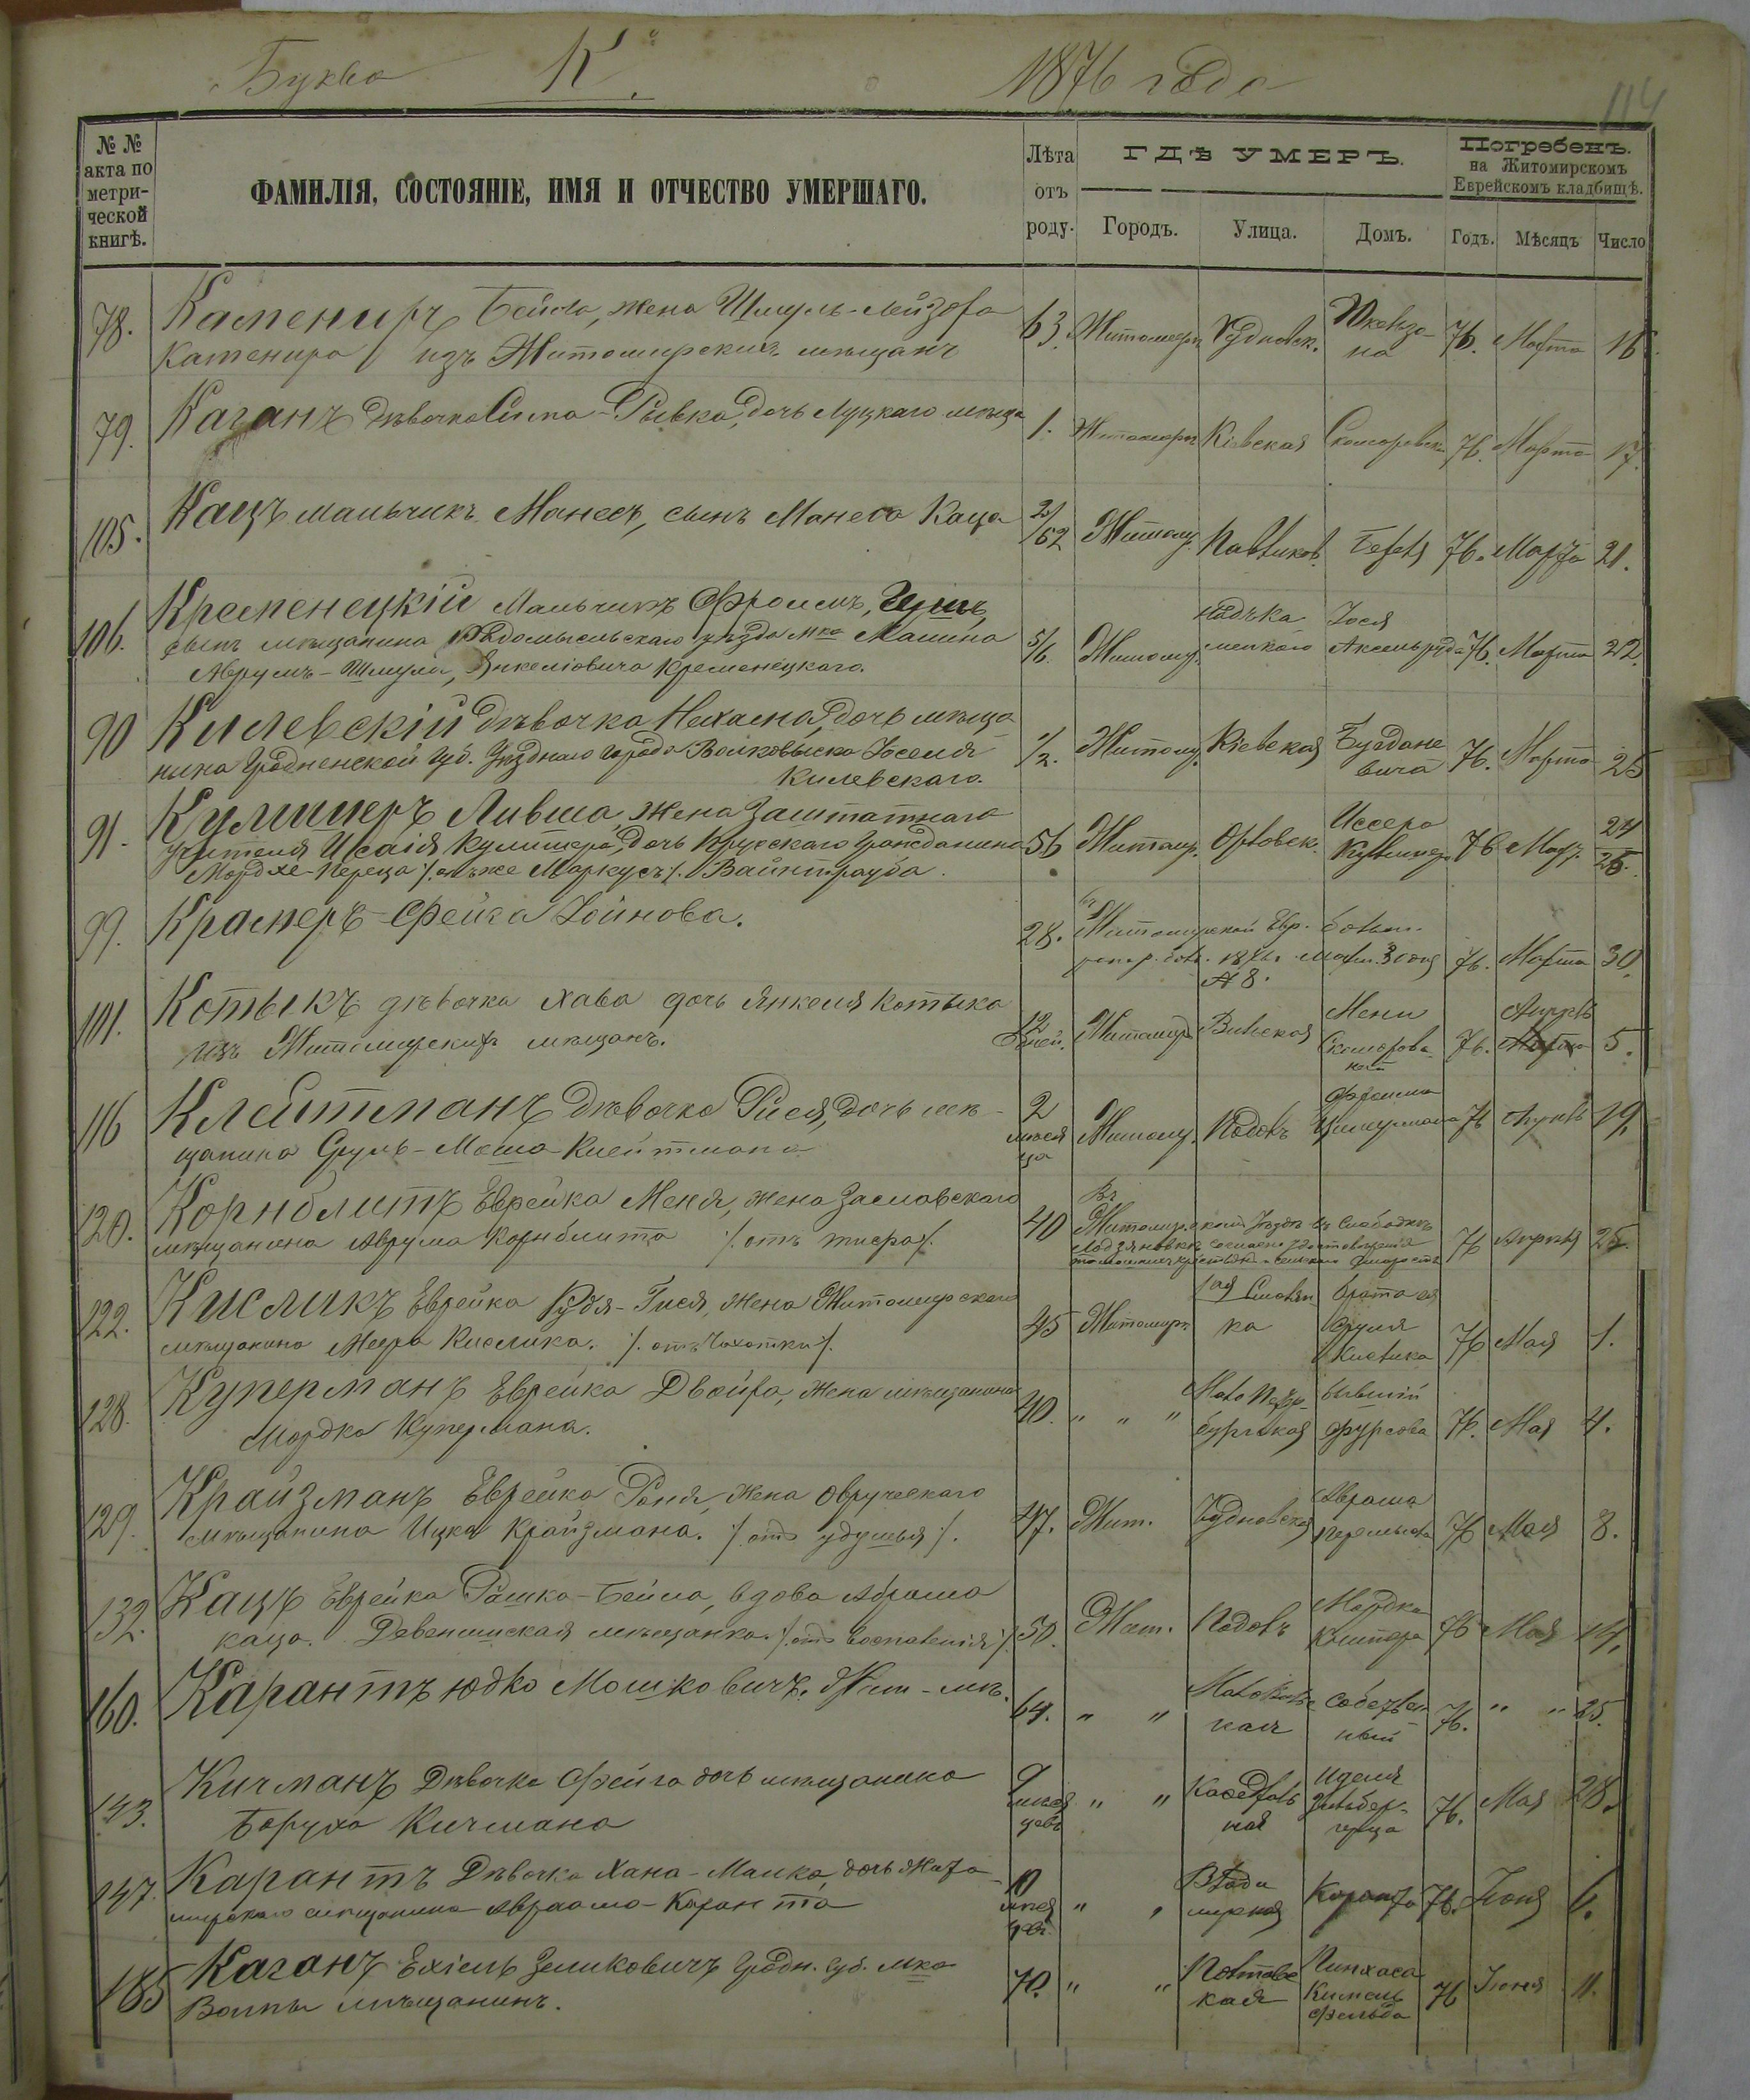 Буква К. 1876 года
114
№ №
акта по
метри-
ческой
книгѣ.
ФАМИЛІЯ, СОСТОЯНІЕ, ИМЯ И ОТЧЕСТВО УМЕРШАГО.
Лѣта
отъ
роду.
ГДѢ УМЕРЪ.
Городъ. Улица. Домъ.
Погребенъ.
на Житомирскомъ
Еврейскомъ кладбищѣ.
Годъ. Мѣсяцъ Число
78. Камениръ Бейла, жена Шмуль-Лейзора
Каменира изъ Житомирскихъ мѣщанъ
63. Житомиръ Чудновск. 76. Марта 16.
79. Каганъ дѣвочка Сима-Рывка, дочь Луцкаго мѣща
1. Житомиръ Кіевская 76. Марта 17.
105. Кацъ мальчикъ Манесъ, сынъ Манеса Каца
Житом. 76. Марта 21.
106. Кременецкій Мальчикъ Фроимъ,
сынъ мѣщанина Радомысльскаго уѣзда мка Малина
Аврумъ-Шмуля, Янкеліовича Кременецкаго.
5/6. Житом. Іося
Аксельруда 76. Марта 22.
90 Килевскій дѣвочка Нехама, дочь мѣща
нина Гродненской губ. Уѣзднаго города Волковыска Іоселя
Килевскаго.
1/2. Житом. Кіевская 76. Марта 25
91. Кулишеръ Ливша, жена Заштатнаго
учителя Исаія Кулишера, дочь Курскаго Гражданина
Мордхе-Переца /. онъ же Маркусъ /. Вайнтрауба.
56 Житомир. 76 Мар. 24
25.
99. Крамеръ-Фейга Хоинова.
28. Житомирской Евр. больн.
№ 8. 76. Марта 30.
101. Котыкъ дѣвочка Хава дочь Янкеля Котыка
изъ Житомирскихъ мѣщанъ.
12
дней. Житомиръ Вильская Мени
Скоморов 76. Апрѣль 5.
116 Клейтманъ дѣвочка Рися, дочь мѣ-
щанина Сруль-Моша Клейтмана
2
мѣся
ца Житомир. Подолъ Фроима
Цимермана 76 Апрѣль 19.
120. Корнблитъ Еврейка Меня, жена Заславскаго
мѣщанина Аврума Корнблита /. отъ тифа /.
40 Въ
Житомирскомъ Уѣздѣ въ Слободкѣ
76 Апрѣля 25.
122. Кисликъ Еврейка Рудя-Гися, жена Житомирскаго
мѣщанина Меера Кислика. /. отъ Чахотки /.
45 Житомиръ брата ея
Сруля
Кислика 76 Мая 1.
128. Куперманъ Еврейка Двойра, жена мѣщанина
Мордка Купермана.
40. " " " бывшій
Фурсова 76. Мая 4.
129. Крайзманъ Еврейка Раня, жена Овручскаго
мѣщанина Ицка Крайзмана. /. отъ удушья /.
47. Жит. Чудновская Аврама 76 Мая 8.
132. Кацъ Еврейка Рашка-Бейла, вдова Абрама
Каца. Девенишская мѣщанка. /. отъ воспаленія /.
50. Жит. Подолъ Мордка 76 Мая 14.
160. Карантъ Юдко Мошковичъ. Жит-мѣ.
64. " " собствен
ный 76. " " 25.
143. Кичманъ Дѣвочка Фейга дочь мѣщанина
Боруха Кичмана
9
мѣся
цевъ " " Каѳедраль
ная Иделя
Зильбер-
герца 76. Мая 28.
147. Карантъ Дѣвочка Хана-Малка, дочь Жито
мирскаго мѣщанина Авраама-Каранта
10
мѣся
цев. " " Влади
мирская Каранта 76. Іюня 6.
185 Каганъ Ехіель Зеликовичъ Гродн. губ. мка
Волпы мѣщанинъ.
70. " " Полтавс
кая Пинхаса
Кимель
фельда 76 Іюня 11.